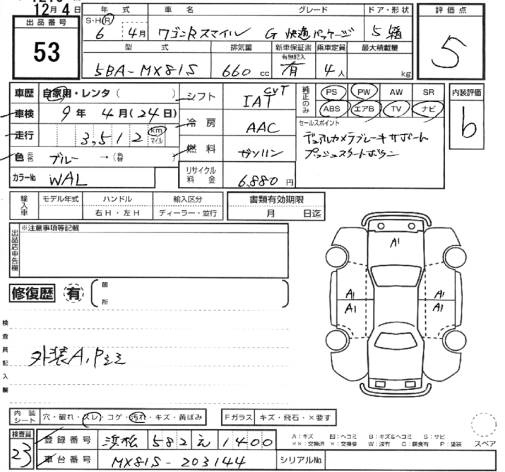 12月4日
出品番号
53
年式
S・H・R 6年 4月
車名
ワゴンRスマイル
グレード
G 快適パッケージ
ドア・形状
5 箱
評価点
5
型式
5BA-MX81S
排気量
660 cc
新車保証書
有無記入
有
乗車定員
4人
最大積載量
kg
車歴 自家用・レンタ( )
車検 9年 4月(24日)
走行 3,512 km マイル
色 ブルー →( )
カラーNo WAL
シフト IAT CVT
冷房 AAC
燃料 ガソリン
リサイクル料金 6,880 円
純正のみ○
PS PW AW SR
ABS エアB TV ナビ
セールスポイント
デュアルカメラブレーキサポート
プッシュスタートボタン
内装評価
b
輸入車
モデル年式
ハンドル
右H・左H
輸入区分
ディーラー・並行
書類有効期限
月 日迄
出品店申告欄
※注意事項等記載
修復歴 有
箇所
検査員記入欄
外装A,Pミミ
A1
A1 A1
A1 A1
内装シート 穴・破れ・スレ・コゲ・汚れ・キズ・黄ばみ
Fガラス キズ・飛石・×要す
検査員
23
登録番号 浜松 582 え 1400
車台番号 MX81S-203144
シリアルNo
A:キズ U:ヘコミ B:キズ&ヘコミ S:サビ
スペア